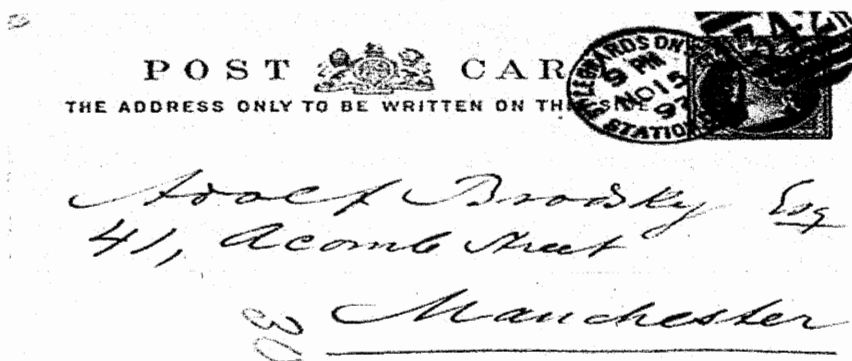 POST CAR
THE ADDRESS ONLY TO BE WRITTEN ON TH
LEONARDS ON
9 PM
NO 15
97
STATION
Adolf Brodsky Esq
41, Acomb Street
Manchester
30